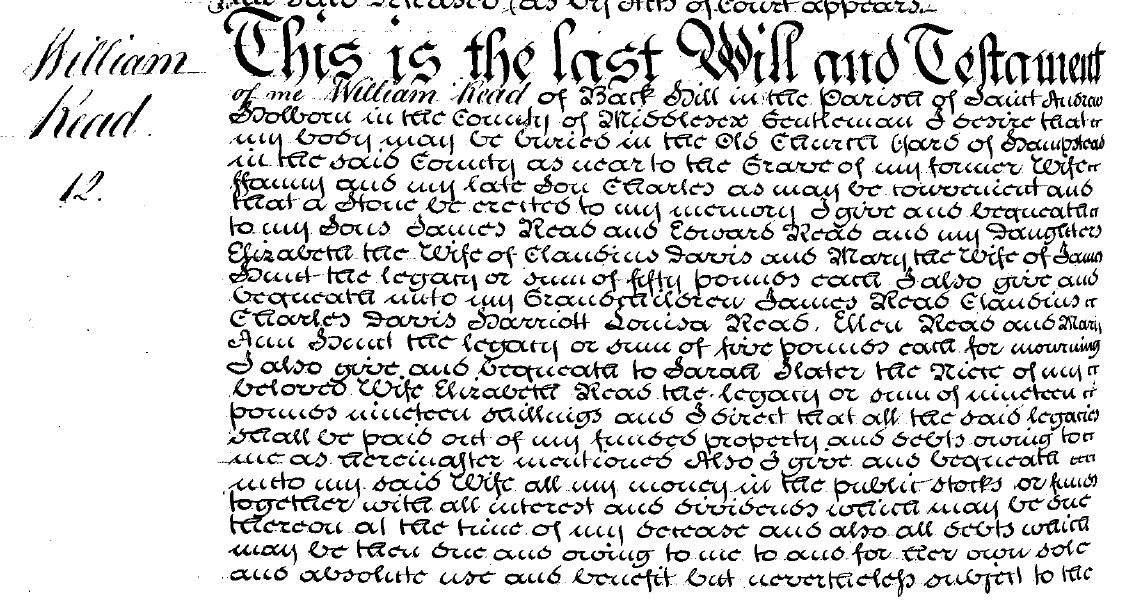 said deceased (as by Acts of Court appears.
William
Read.
12.
This is the last Will and Testament
of me William Read of Back Hill in the Parish of Saint Andrew
Holborn in the County of Middlesex Gentleman I desire that
my body may be buried in the Old Church Yard of Hampstead
in the said County as near to the Grave of my former Wife
ffanny and my late Son Charles as may be convenient and
that a Stone be erected to my memory I give and bequeath
to my Sons James Read and Edward Read and my Daughters
Elizabeth the Wife of Claudius Davis and Mary the Wife of James
Hunt the legacy or sum of fifty pounds each I also give and
bequeath unto my Grandchildren James Read Claudius
Charles Davis Harriott Louisa Read, Ellen Read and Mary
Ann Hunt the legacy or sum of five pounds each for mourning
I also give and bequeath to Sarah Slater the Niece of my
beloved Wife Elizabeth Read the legacy or sum of nineteen
pounds nineteen shillings and I direct that all the said legacies
shall be paid out of my funded property and debts owing to
me as hereinafter mentioned Also I give and bequeath
unto my said Wife all my money in the public stocks or funds
together with all interest and dividends which may be due
thereon at the time of my decease and also all debts which
may be then due and owing to me to and for her own sole
and absolute use and benefit but nevertheless subject to the